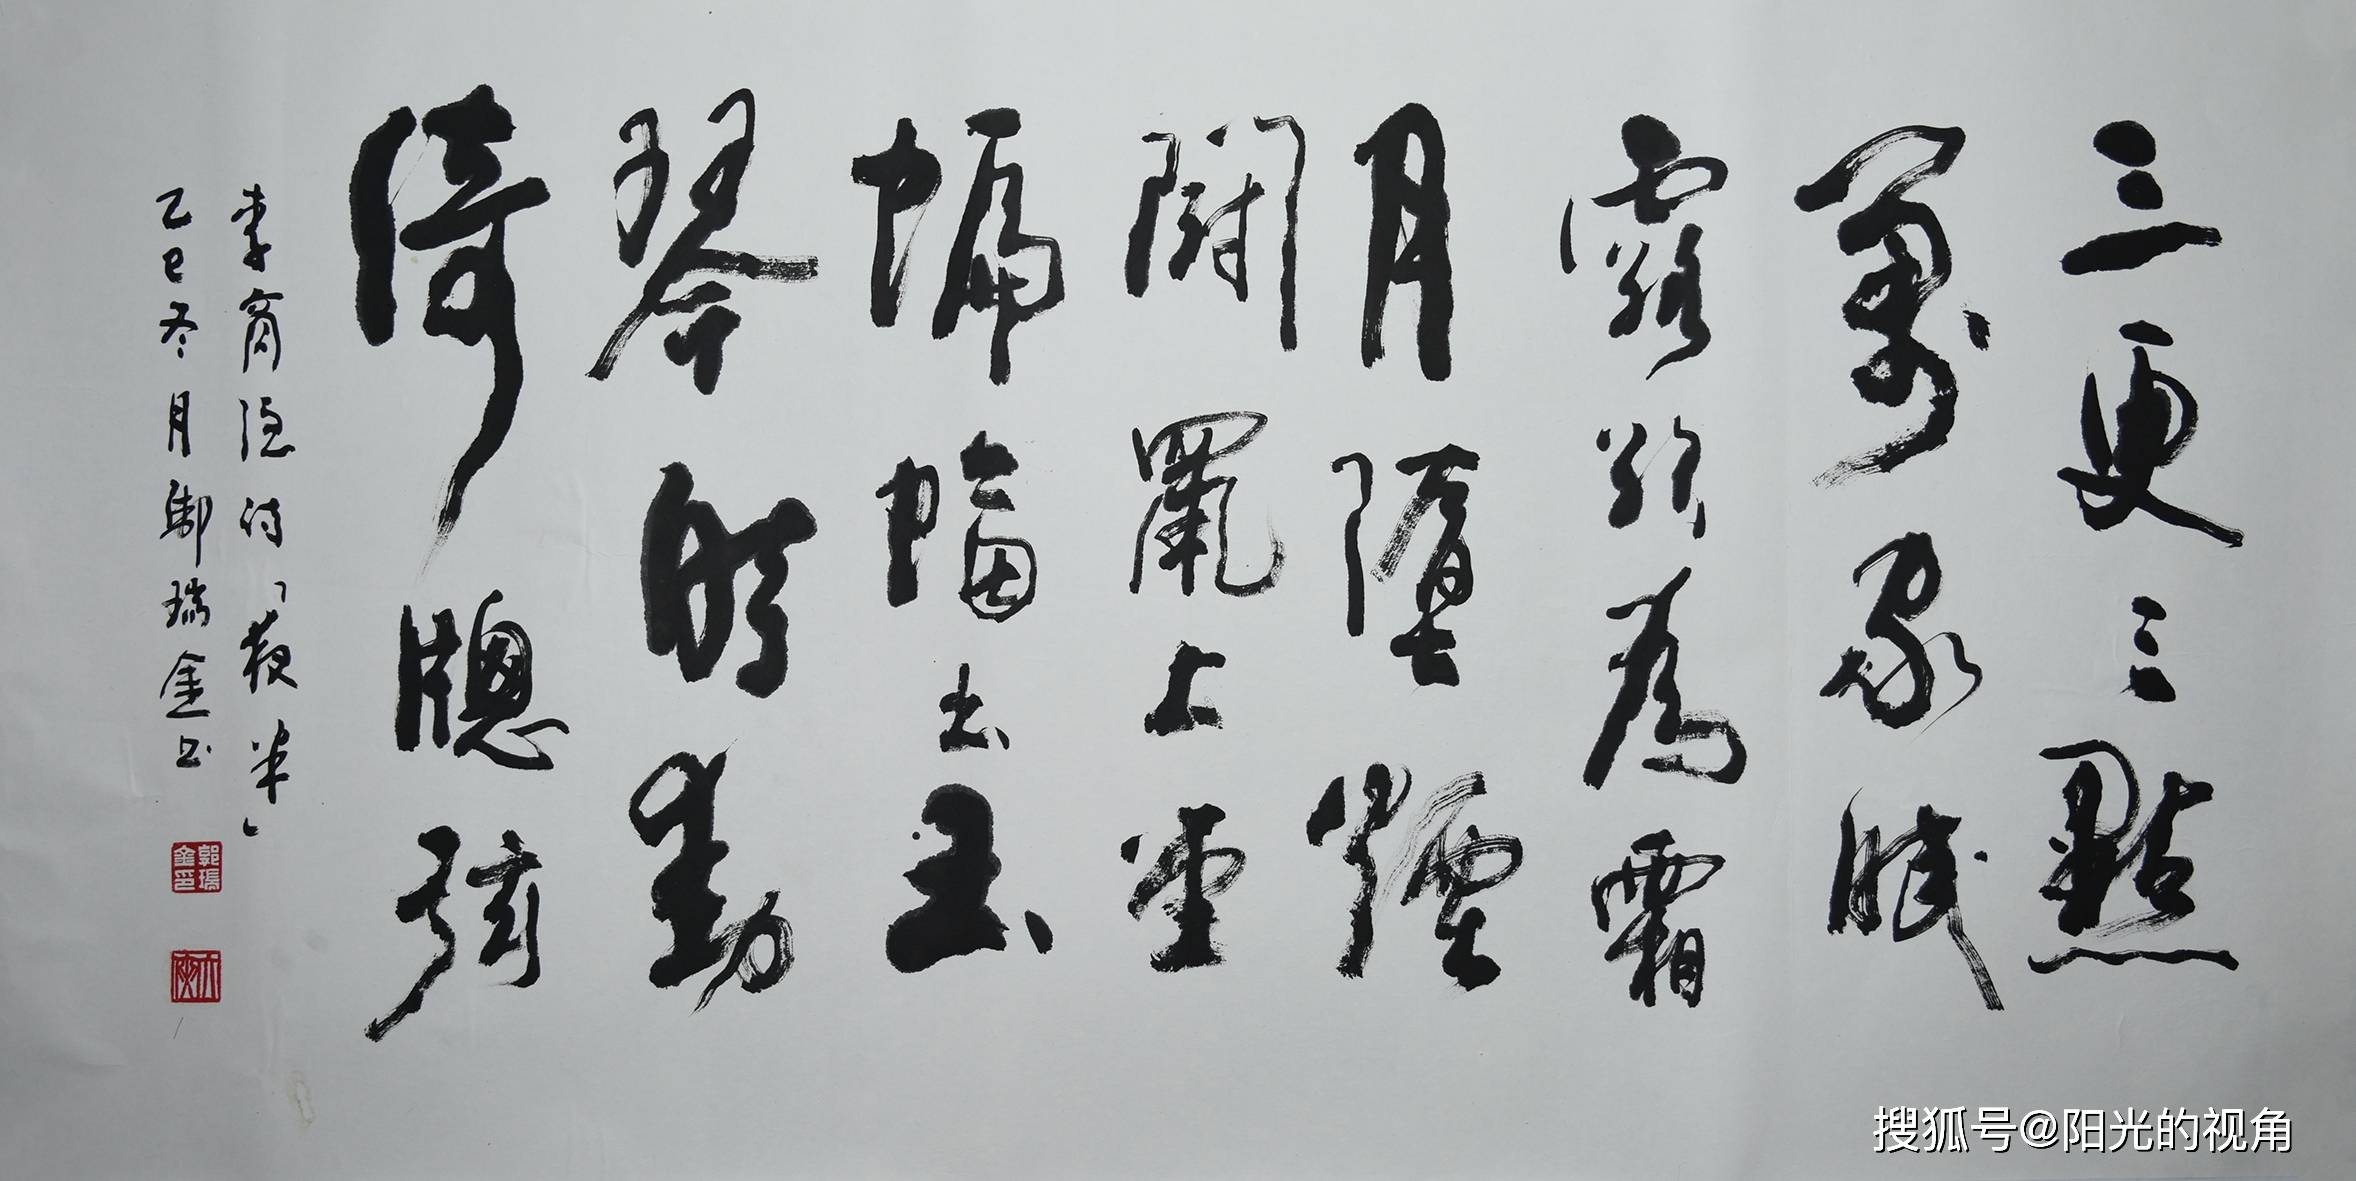 三更三點
萬家眠
露欲為霜
月墮煙
鬪鼠上堂
蝙蝠出玉
琴時動
倚牕弦
李商隐诗「夜半」
乙巳冬月郭瑞金书
郭瑞金印
搜狐号@阳光的视角